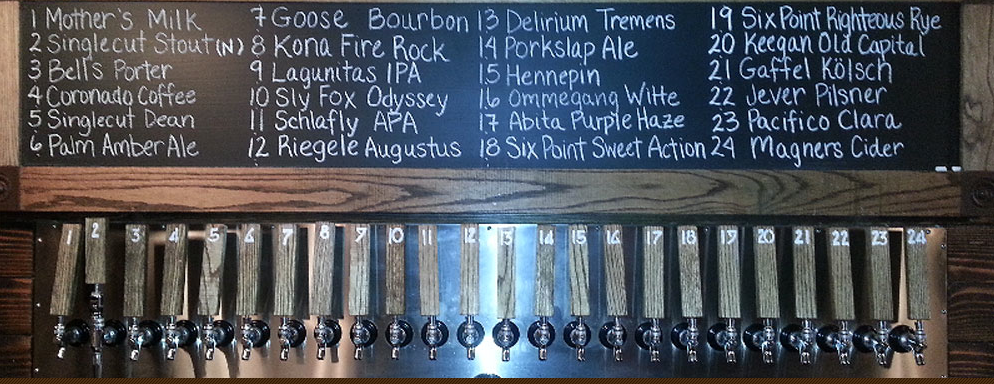 1 Mother's Milk
2 Singlecut Stout (N)
3 Bell's Porter
4 Coronado Coffee
5 Singlecut Dean
6 Palm Amber Ale
7 Goose Bourbon
8 Kona Fire Rock
9 Lagunitas IPA
10 Sly Fox Odyssey
11 Schlafly APA
12 Riegele Augustus
13 Delirium Tremens
14 Porkslap Ale
15 Hennepin
16 Ommegang Witte
17 Abita Purple Haze
18 Six Point Sweet Action
19 Six Point Righteous Rye
20 Keegan Old Capital
21 Gaffel Kölsch
22 Jever Pilsner
23 Pacifico Clara
24 Magners Cider
1 2 3 4 5 6 7 8 9 10 11 12 13 14 15 16 17 18 19 20 21 22 23 24